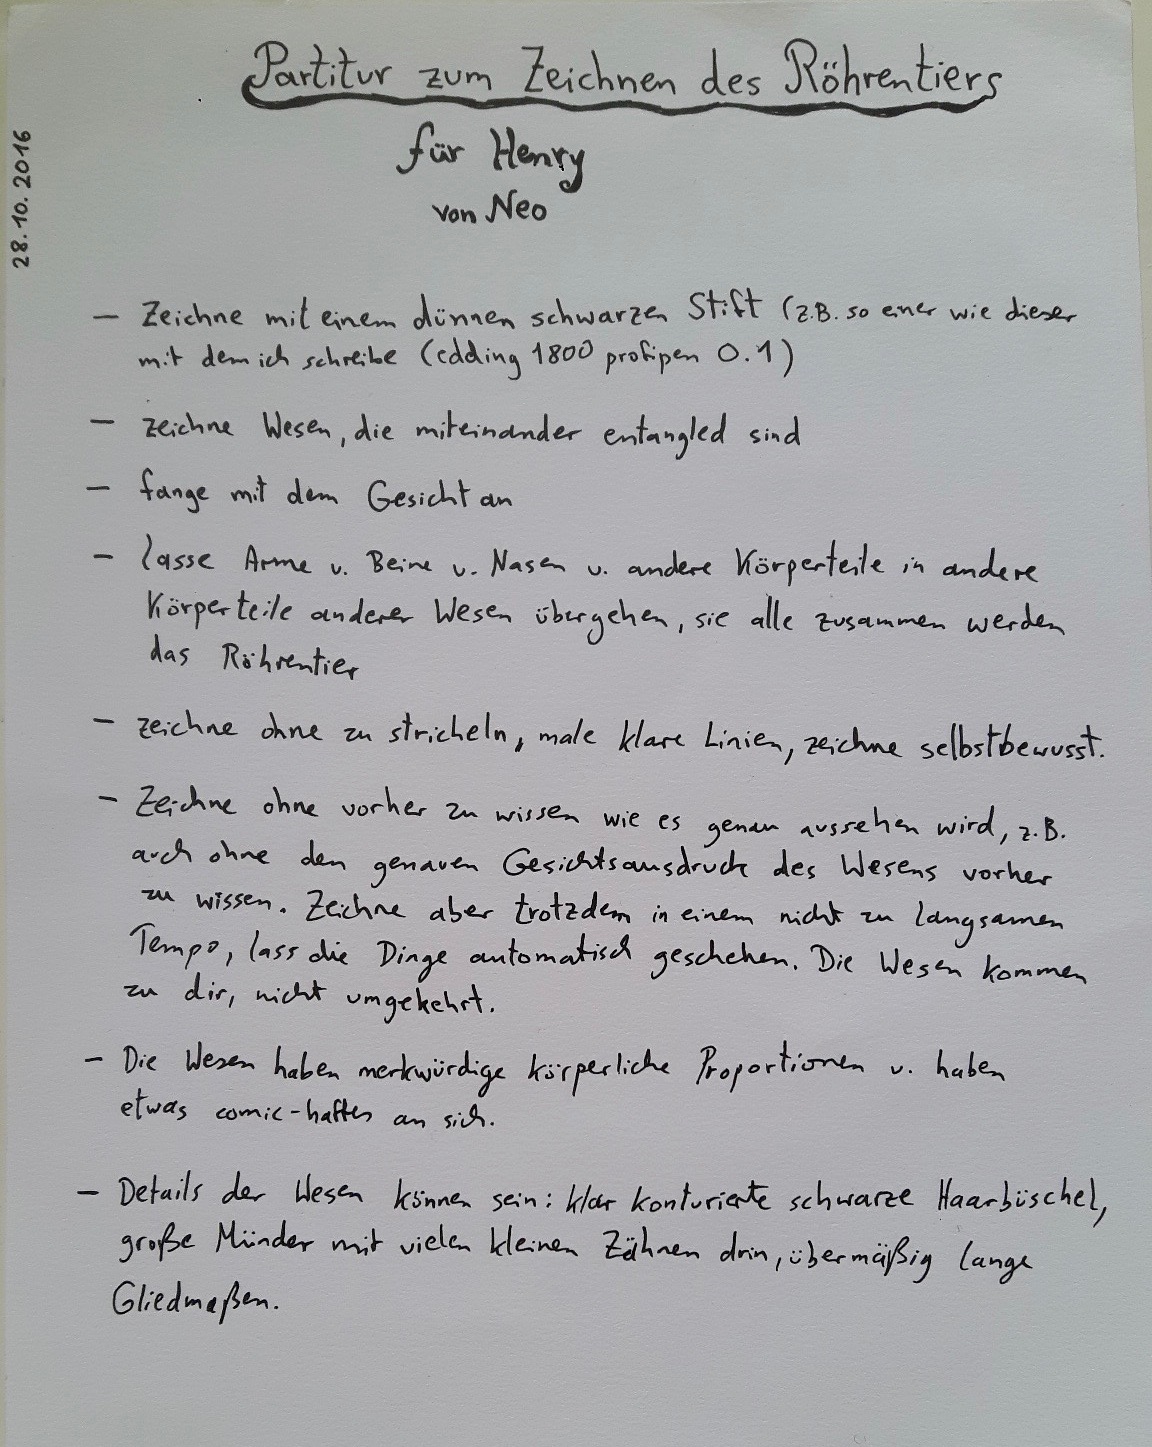 Partitur zum Zeichnen des Röhrentiers
für Henry
von Neo
28.10.2016
– Zeichne mit einem dünnen schwarzen Stift (z.B. so einer wie dieser
mit dem ich schreibe (edding 1800 profipen 0.1)
– zeichne Wesen, die miteinander entangled sind
– fange mit dem Gesicht an
– lasse Arme u. Beine u. Nasen u. andere Körperteile in andere
Körperteile anderer Wesen übergehen, sie alle zusammen werden
das Röhrentier
– zeichne ohne zu stricheln, male klare Linien, zeichne selbstbewusst.
– Zeichne ohne vorher zu wissen wie es genau aussehen wird, z.B.
auch ohne den genauen Gesichtsausdruck des Wesens vorher
zu wissen. Zeichne aber trotzdem in einem nicht zu langsamen
Tempo, lass die Dinge automatisch geschehen. Die Wesen kommen
zu dir, nicht umgekehrt.
– Die Wesen haben merkwürdige körperliche Proportionen u. haben
etwas comic-haftes an sich.
– Details der Wesen können sein: klar konturierte schwarze Haarbüschel,
große Münder mit vielen kleinen Zähnen drin, übermäßig lange
Gliedmaßen.